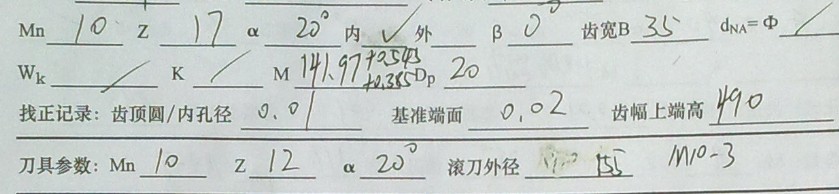 Mn 10 Z 17 α 20° 内 ✓ 外 β 0° 齿宽B 35 dNA=Φ /
Wk / K / M 141.97 +0.545 +0.385 Dp 20
找正记录：齿顶圆/内孔径 0.01 基准端面 0.02 齿幅上端高 490
刀具参数：Mn 10 Z 12 α 20° 滚刀外径 155 M10-3